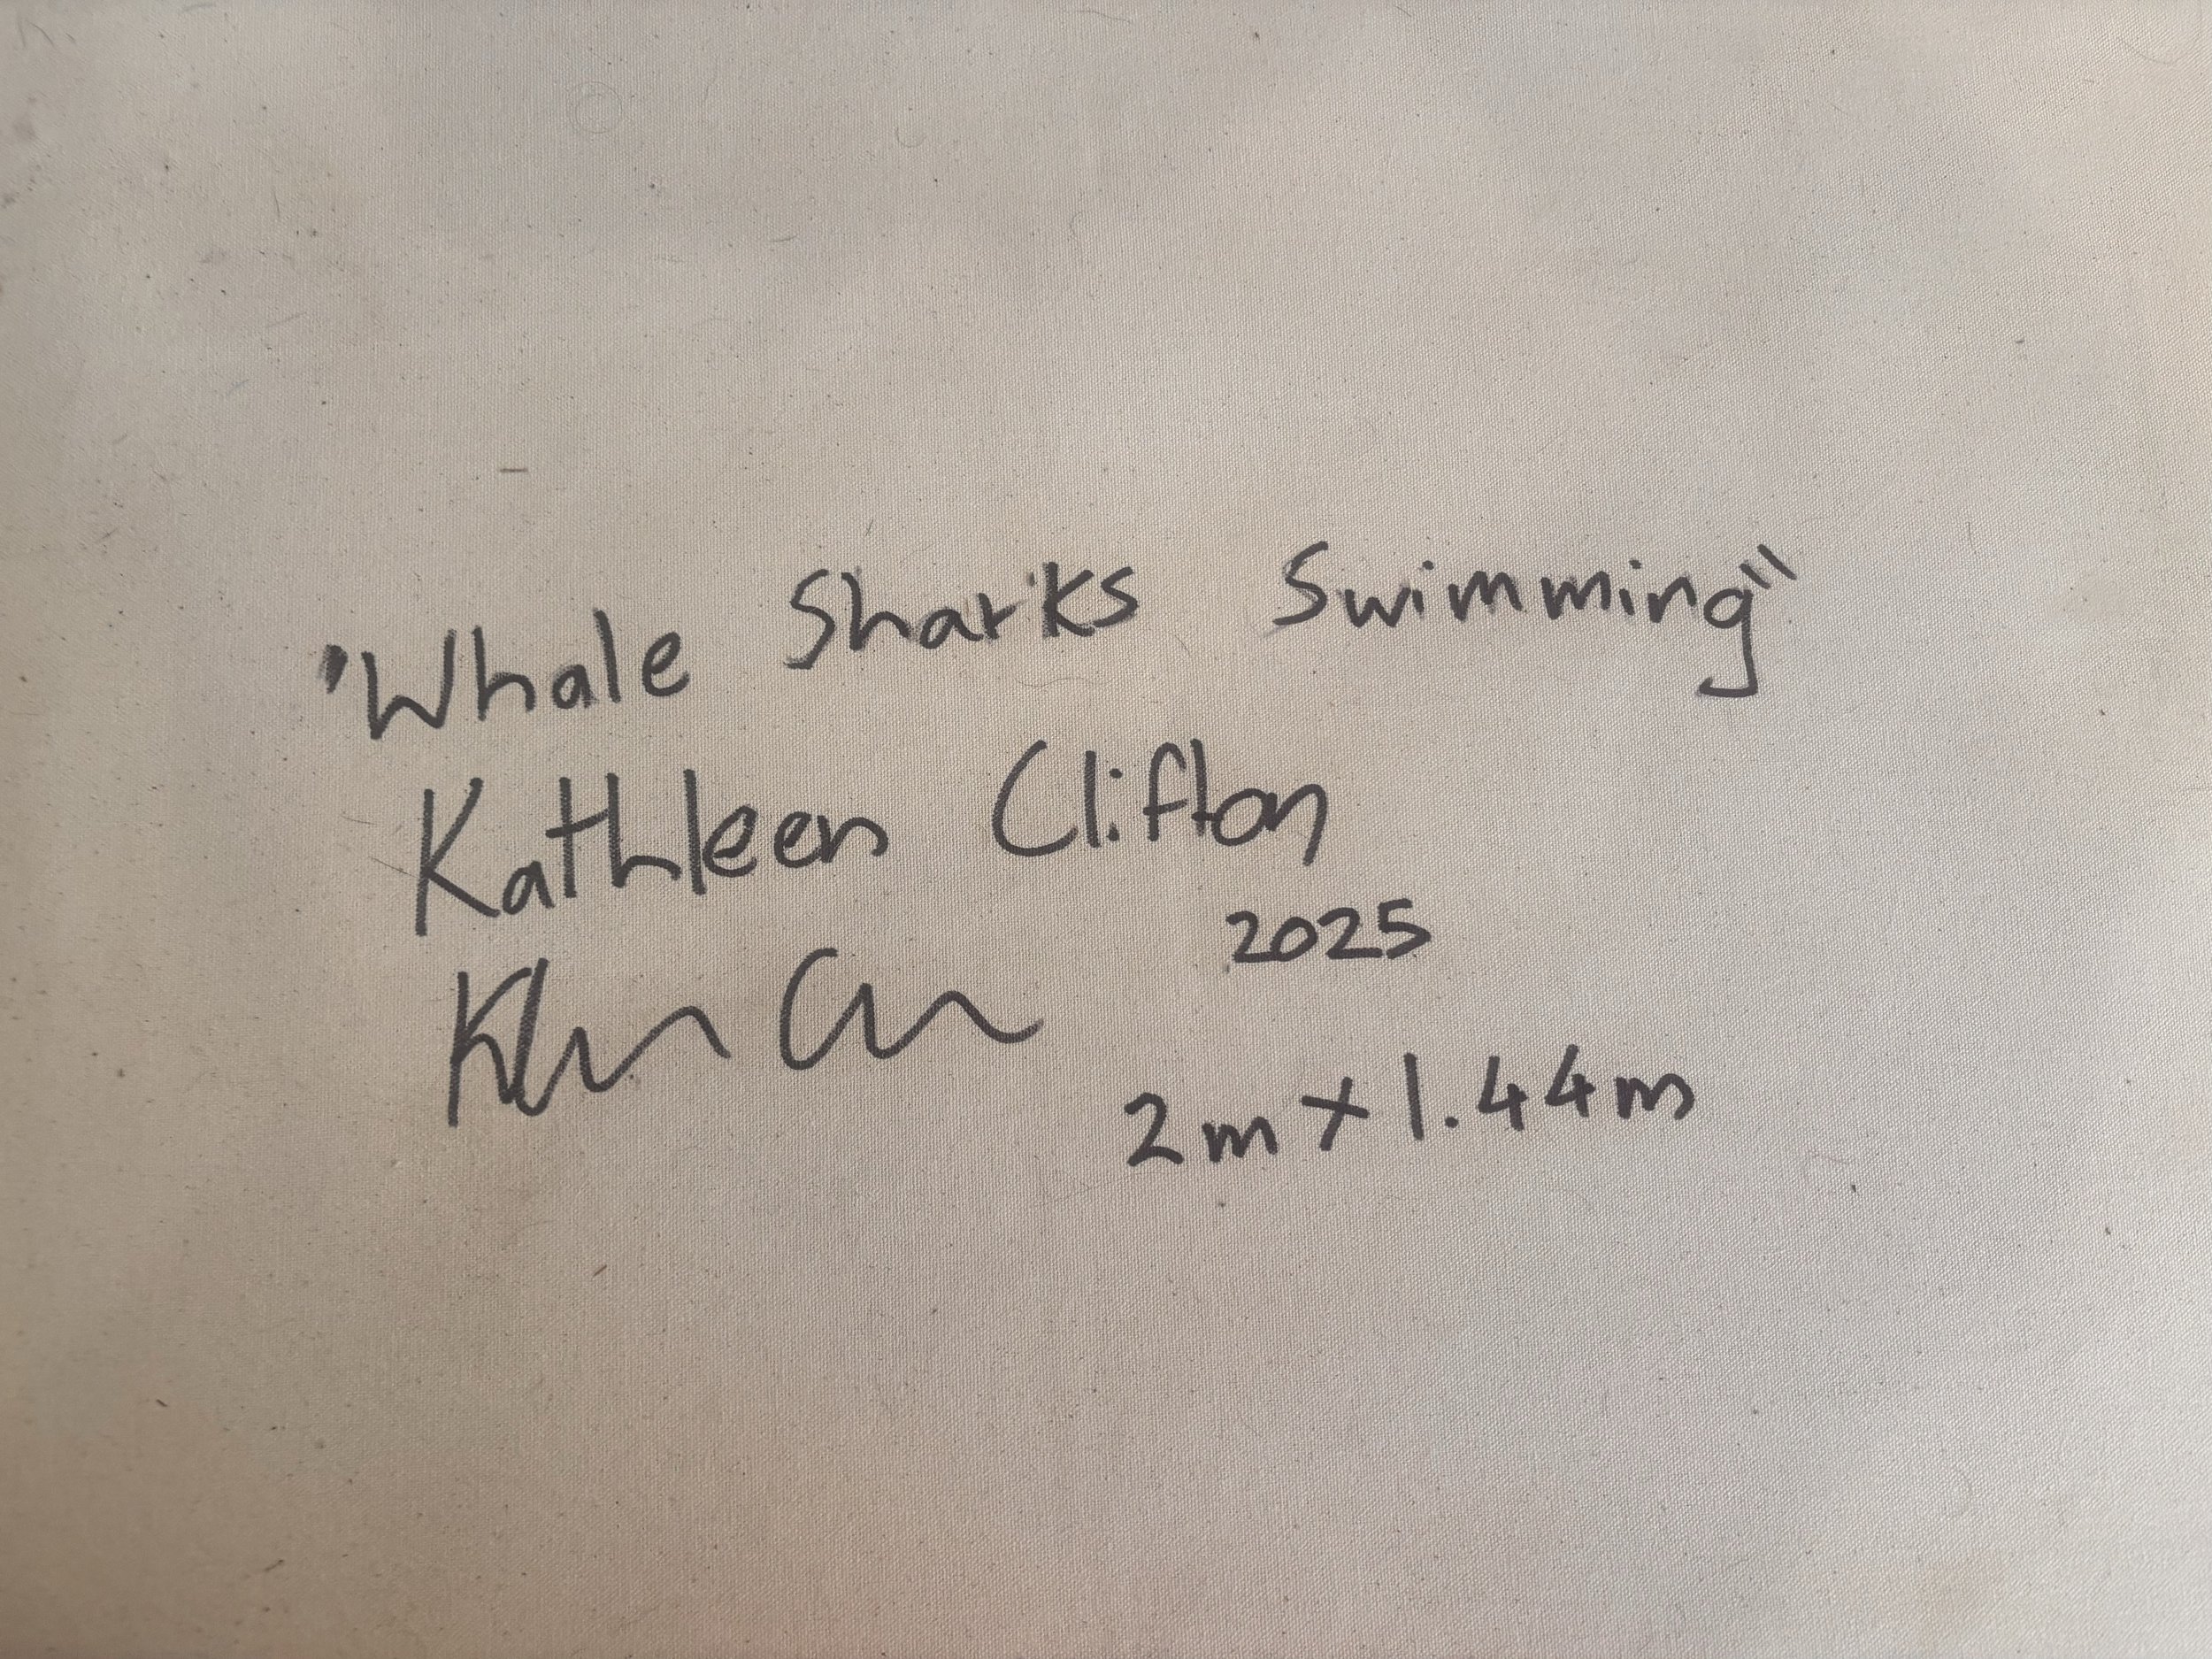 "Whale Sharks Swimming"
Kathleen Clifton
2025
2m x 1.44m